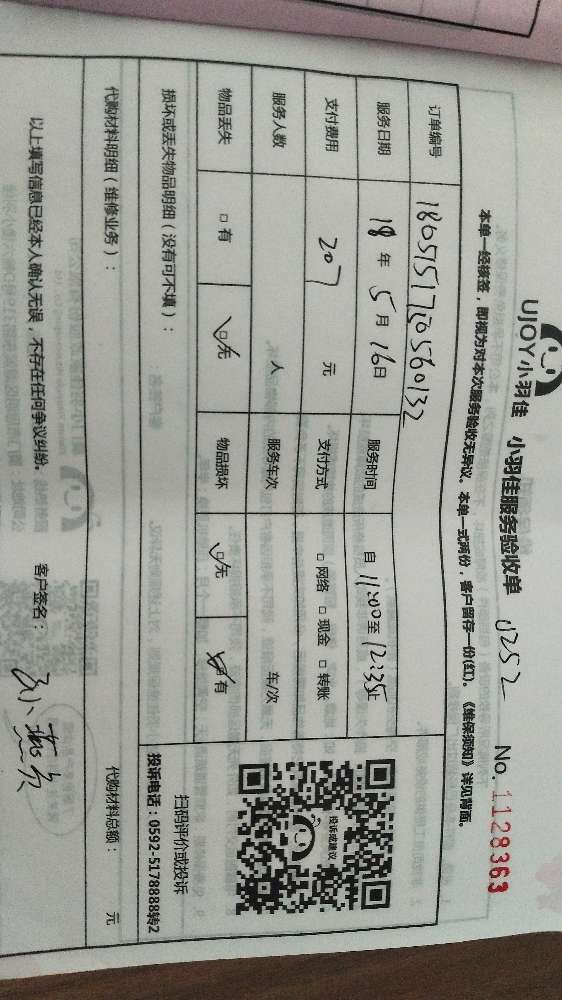 UJOY小羽佳 小羽佳服务验收单 0252 No. 1128363
本单一经核签，即视为对本次服务验收无异议。本单一式两份，客户留存一份(红)。《维保须知》详见背面。
订单编号 1805151720560132
服务日期 18年5月16日 服务时间 自11:00至12:35止
支付费用 207元 支付方式 □网络 □现金 □转账
服务人数 人 服务车次 车/次
物品丢失 □有 □无 物品损坏 □无 □有
损坏或丢失物品明细（没有可不填）：
投诉或建议
扫码评价或投诉
投诉电话：0592-5178888转2
代购材料明细（维修业务）： 代购材料总额： 元
以上填写信息已经本人确认无误，不存在任何争议纠纷。 客户签名：